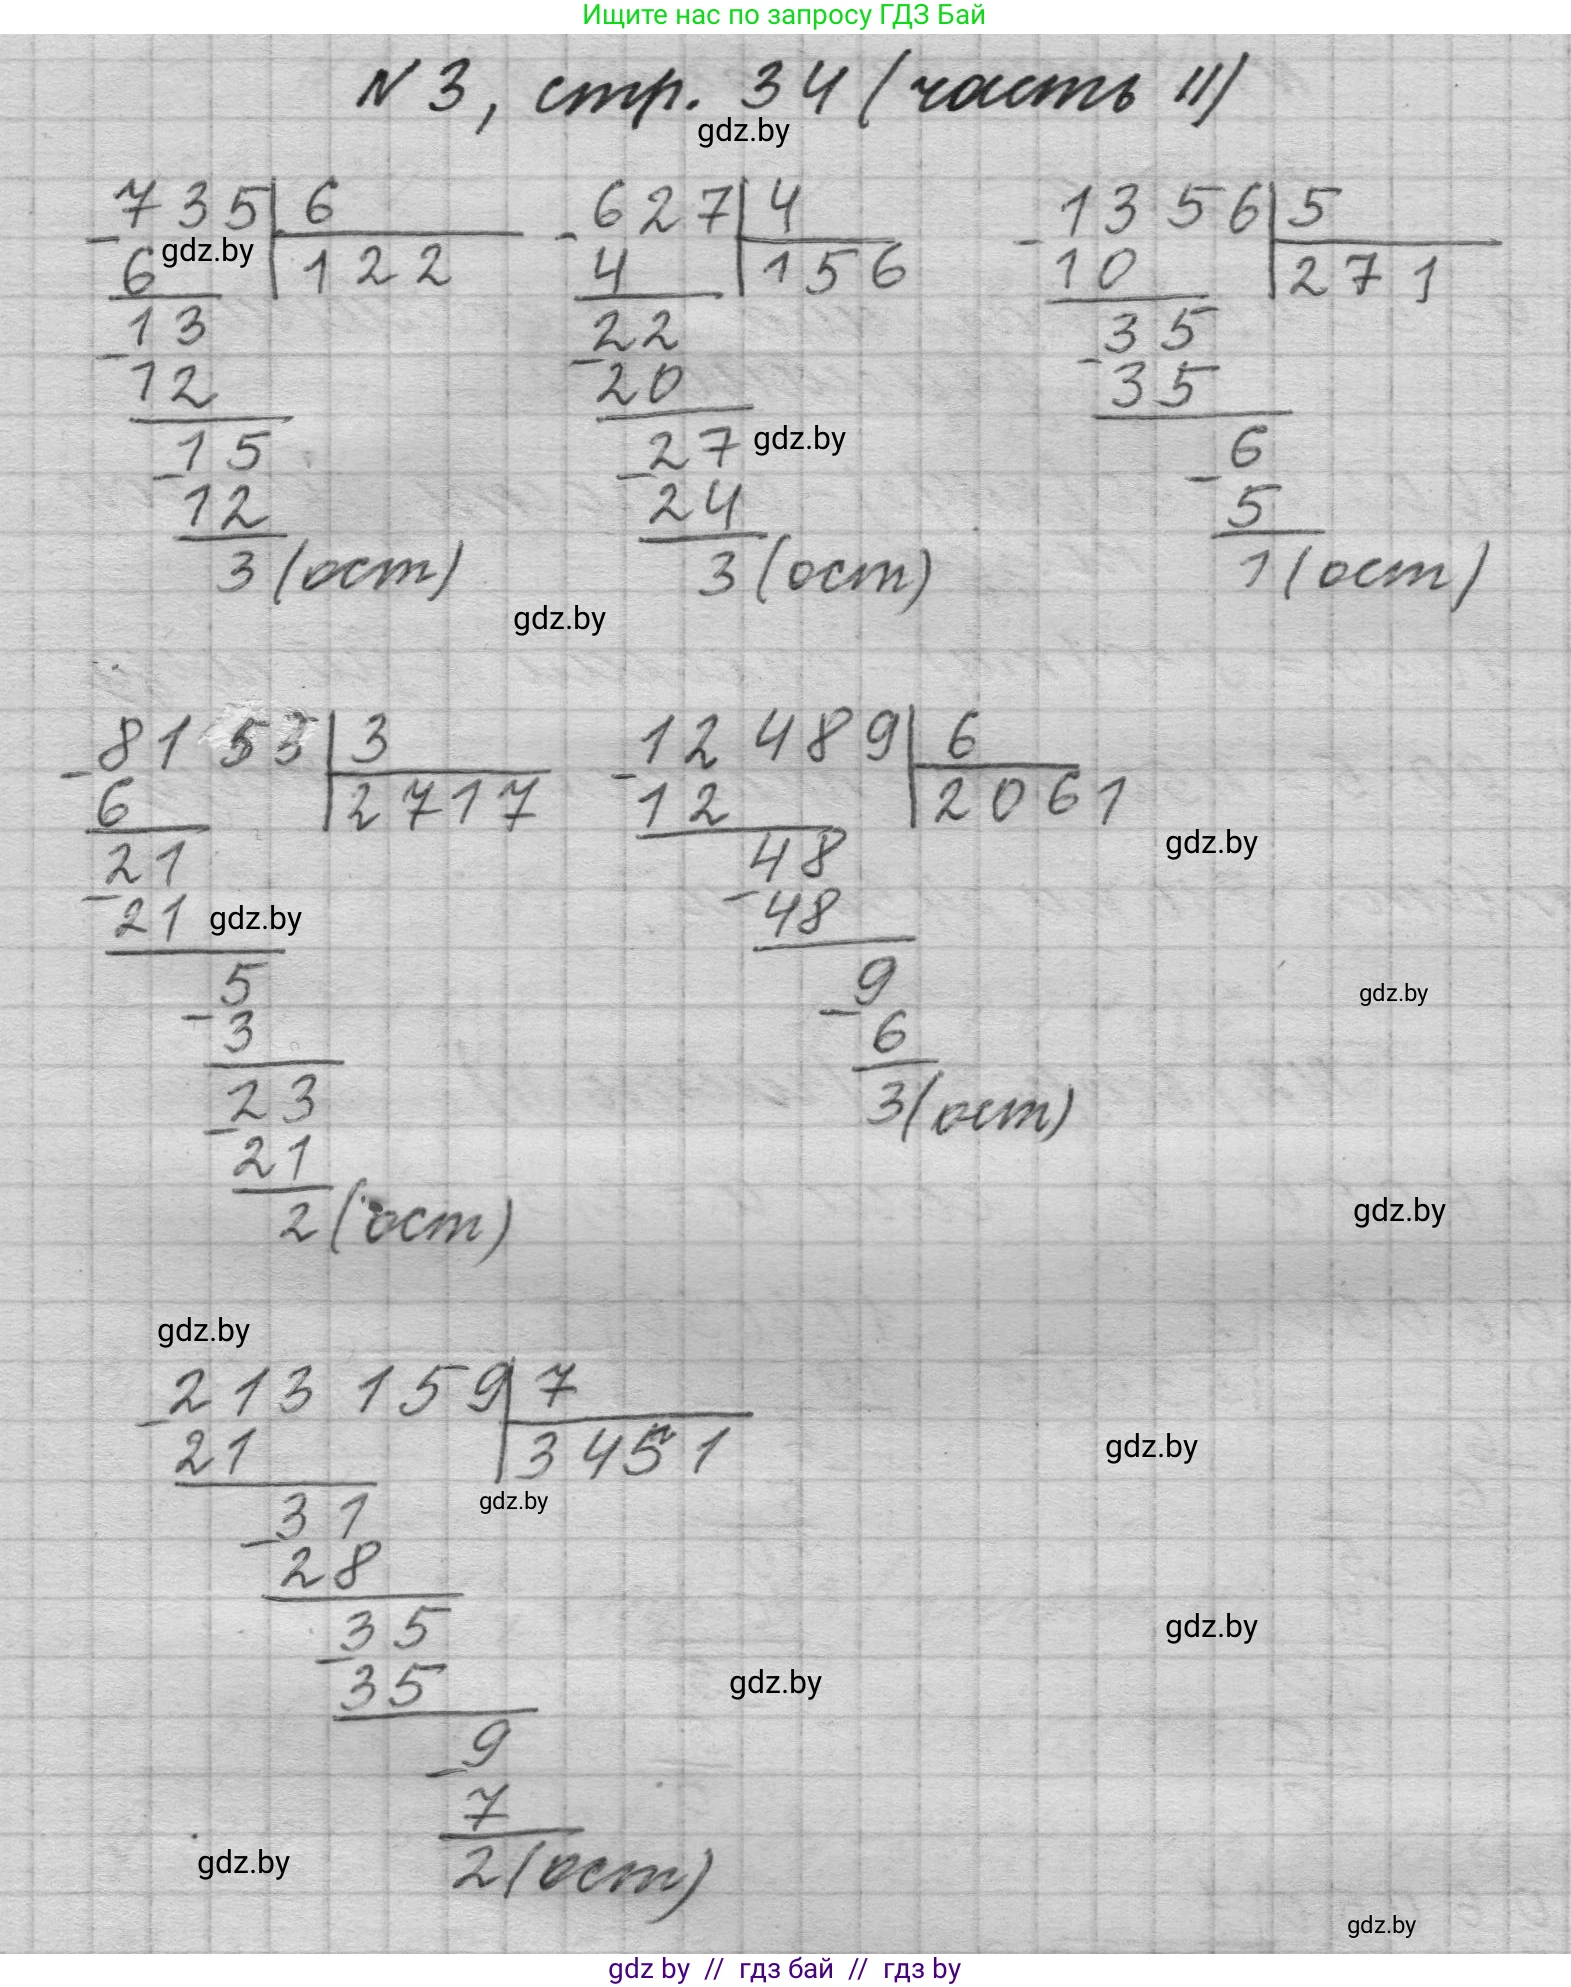 Ищите нас по запросу ГДЗ Бай
N 3, стр. 34 (часть II)
gdz.by
735 6 627 4 1356 5
6 gdz.by 122 4 156 10 271
13 22 35
12 20 35
15 27 gdz.by 6
12 24 5
3 (ост) 3 (ост) 1 (ост)
gdz.by
8153 3 12489 6
6 2717 12 2061
21 48 gdz.by
21 gdz.by 48
5 9 gdz.by
3 6
23 3 (ост)
21
2 (ост) gdz.by
gdz.by
213 159 7
21 3451 gdz.by
31 gdz.by
28
35 gdz.by
35 gdz.by
9
7
gdz.by 2 (ост)
gdz.by
gdz by // гдз бай // гдз by